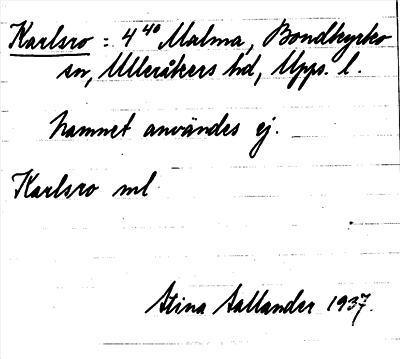 Karlsro = 4⁴⁰ Malma, Bondkyrko
sn, Ulleråkers hd, Upps. l.
Namnet användes ej.
Karlsro ml
Stina Sallander 1937.